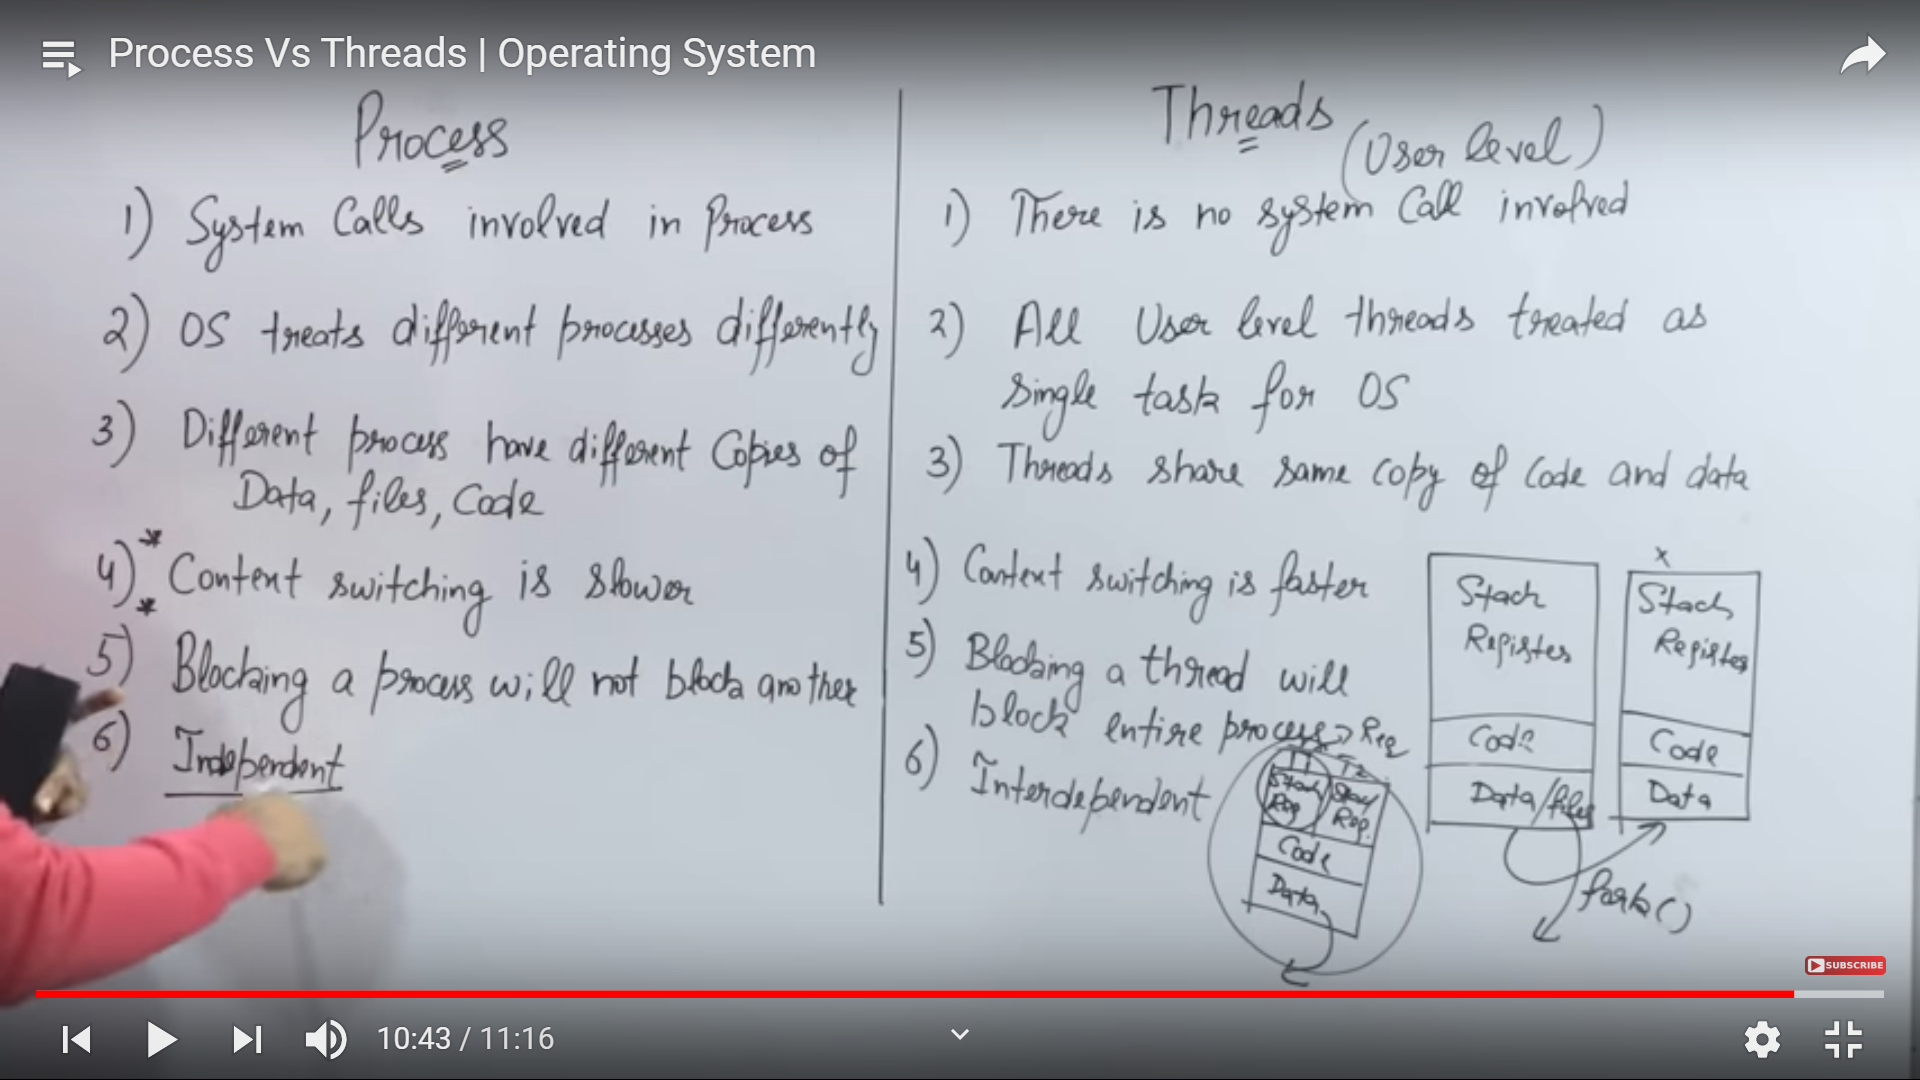 Process Vs Threads | Operating System
Process
1) System Calls involved in Process
2) OS treats different processes differently
3) Different process have different Copies of
Data, files, Code
4) Context switching is slower
5) Blocking a process will not block another
6) Independent
Threads
(User level)
1) There is no system Call involved
2) All User level threads treated as
single task for OS
3) Threads share same copy of Code and data
4) Context switching is faster
5) Blocking a thread will
block entire process → Req
6) Interdependent
T1 T2
Stack Stack
Reg Reg.
Code
Data
Stack
Register
Code
Data/files
x
Stack
Register
Code
Data
fork()
SUBSCRIBE
10:43 / 11:16